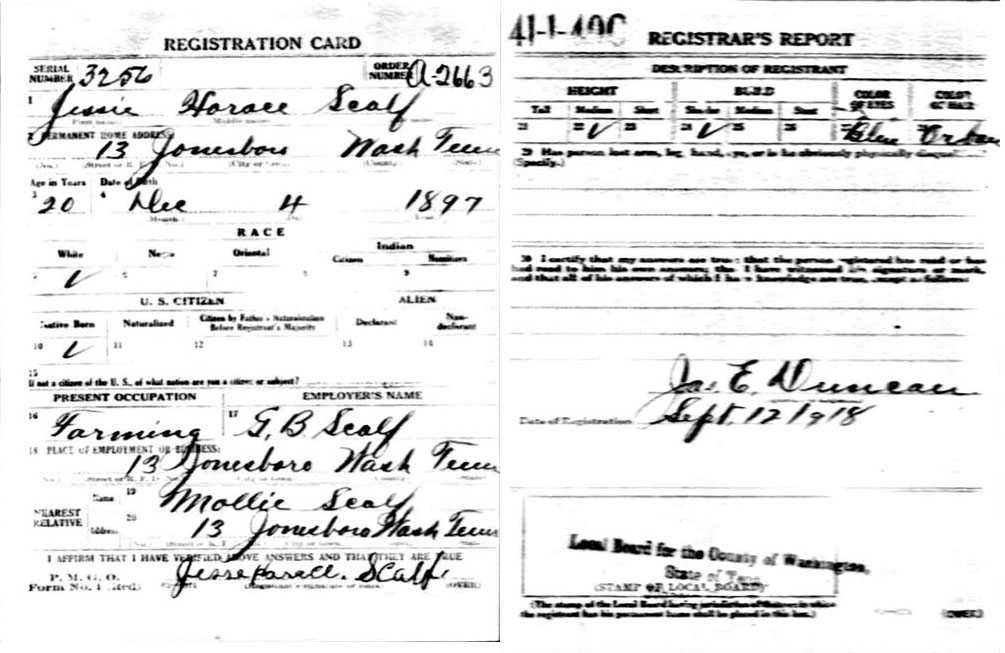 REGISTRATION CARD
SERIAL NUMBER 3256 ORDER NUMBER A-2663
1 Jessie Horace Scalf
First name Middle name
2 PERMANENT HOME ADDRESS:
13 Jonesboro Wash Tenn
(No.) (Street or R. F. D. No.) (City or town) (County) (State)
Age in Years Date of Birth
3 20 4 Dec 4 1897
Month
RACE
White Negro Oriental Indian
Citizen Noncitizen
5 ✓ 6 7 8 9
U. S. CITIZEN ALIEN
Native Born Naturalized Citizen by Father's Naturalization Before Registrant's Majority Declarant Non-declarant
10 ✓ 11 12 13 14
15
If not a citizen of the U. S., of what nation are you a citizen or subject?
PRESENT OCCUPATION EMPLOYER'S NAME
16 Farming 17 G. B. Scalf
18 PLACE OF EMPLOYMENT OR BUSINESS:
13 Jonesboro Wash Tenn
(No.) (Street or R. F. D. No.) (City or town) (County) (State)
NEAREST RELATIVE Name 19 Mollie Scalf
Address 20 13 Jonesboro Wash Tenn
I AFFIRM THAT I HAVE VERIFIED ABOVE ANSWERS AND THAT THEY ARE TRUE
P. M. G. O.
Form No. 1 (Red) Scalf (OVER)
41-1-49 C
REGISTRAR'S REPORT
DESCRIPTION OF REGISTRANT
HEIGHT BUILD COLOR OF EYES COLOR OF HAIR
Tall Medium Short Slender Medium Stout
21 22 ✓ 23 24 ✓ 25 26 27 Blue
29 Has person lost arm, leg, hand, eye, or is he obviously physically disqualified?
(Specify.)
30 I certify that my answers are true; that the person registered has read or has
had read to him his own answers; that I have witnessed his signature or mark,
and that all of his answers of which I have knowledge are true, except as follows:
Jas. E. Duncan
Date of Registration Sept. 12 1918
Local Board for the County of Washington,
State of Tenn
(STAMP OF LOCAL BOARD)
(The stamp of the Local Board having jurisdiction of the area in which
the registrant has his permanent home shall be placed in this box.)
(OVER)